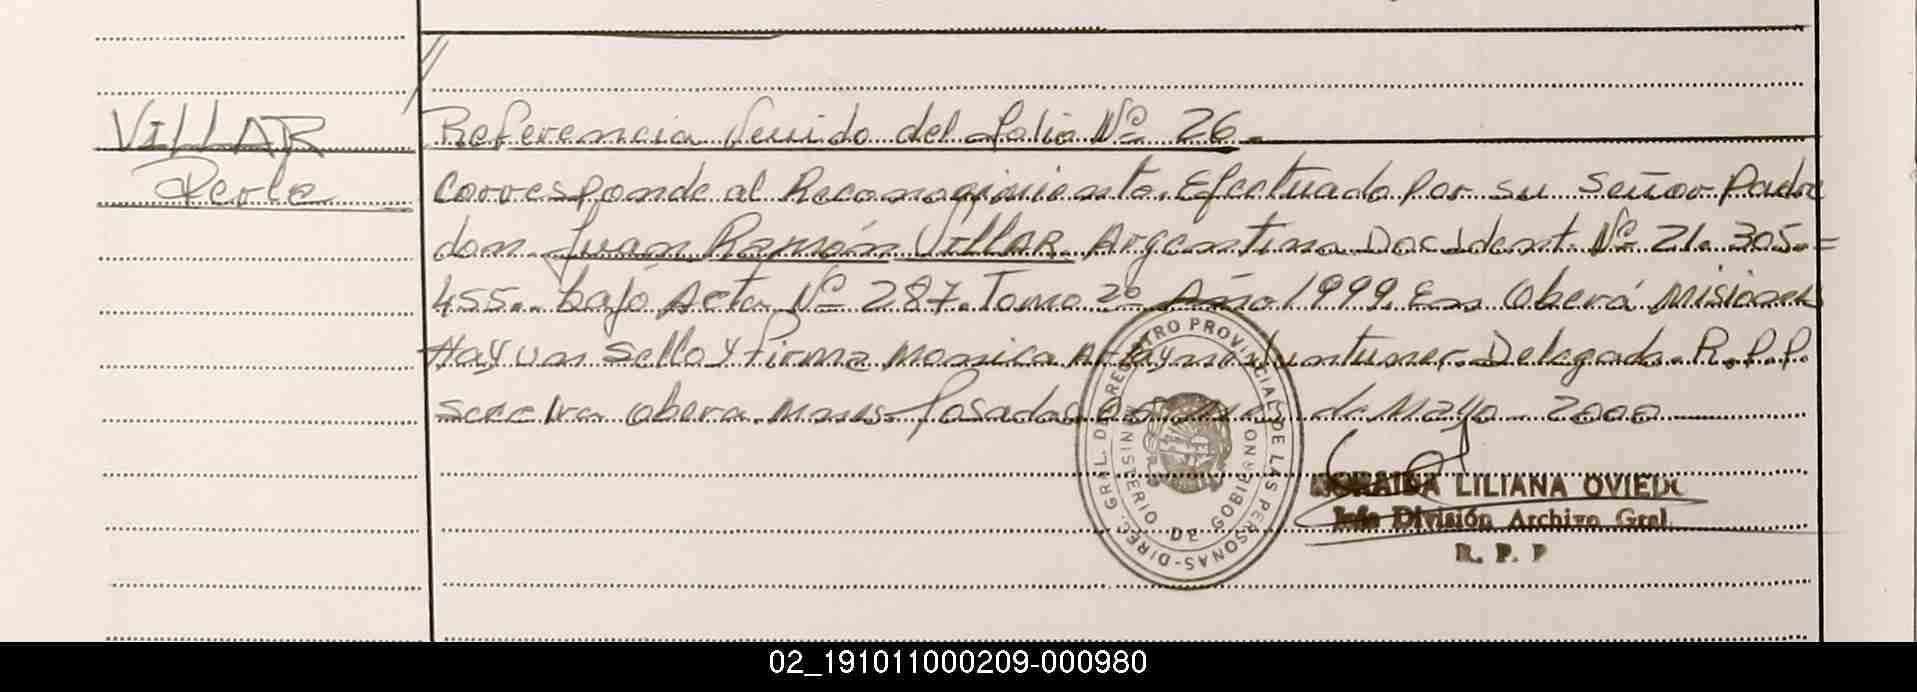 VILLAR
Perla
Referencia Venido del folio Nº 26.
Corresponde al Reconocimiento. Efectuado Por su Señor Padre
don. Juan Ramón VILLAR. Argentino Doc Ident. Nº 21.305.=
455.. bajo Acta Nº 287. Tomo 2º Año 1999. En Oberá Misiones
Hay un Sello y Firma Monica Delegada. R.P.P.
Obera. Mnes. Posadas de Mayo 2000
REGISTRO PROVINCIAL DE LAS PERSONAS-DIREC. GRAL. DE
MINISTERIO DE GOBIERNO
LILIANA OVIEDO
Jefe División Archivo Gral.
R. P. P
02_191011000209-000980